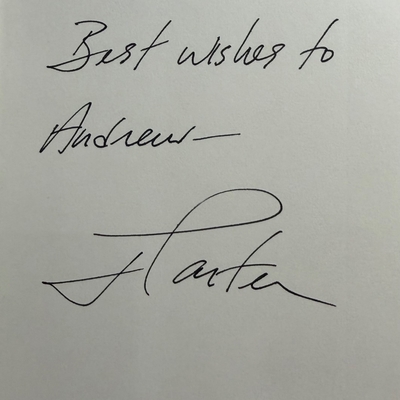 Best wishes to
Andrew—
J Carter